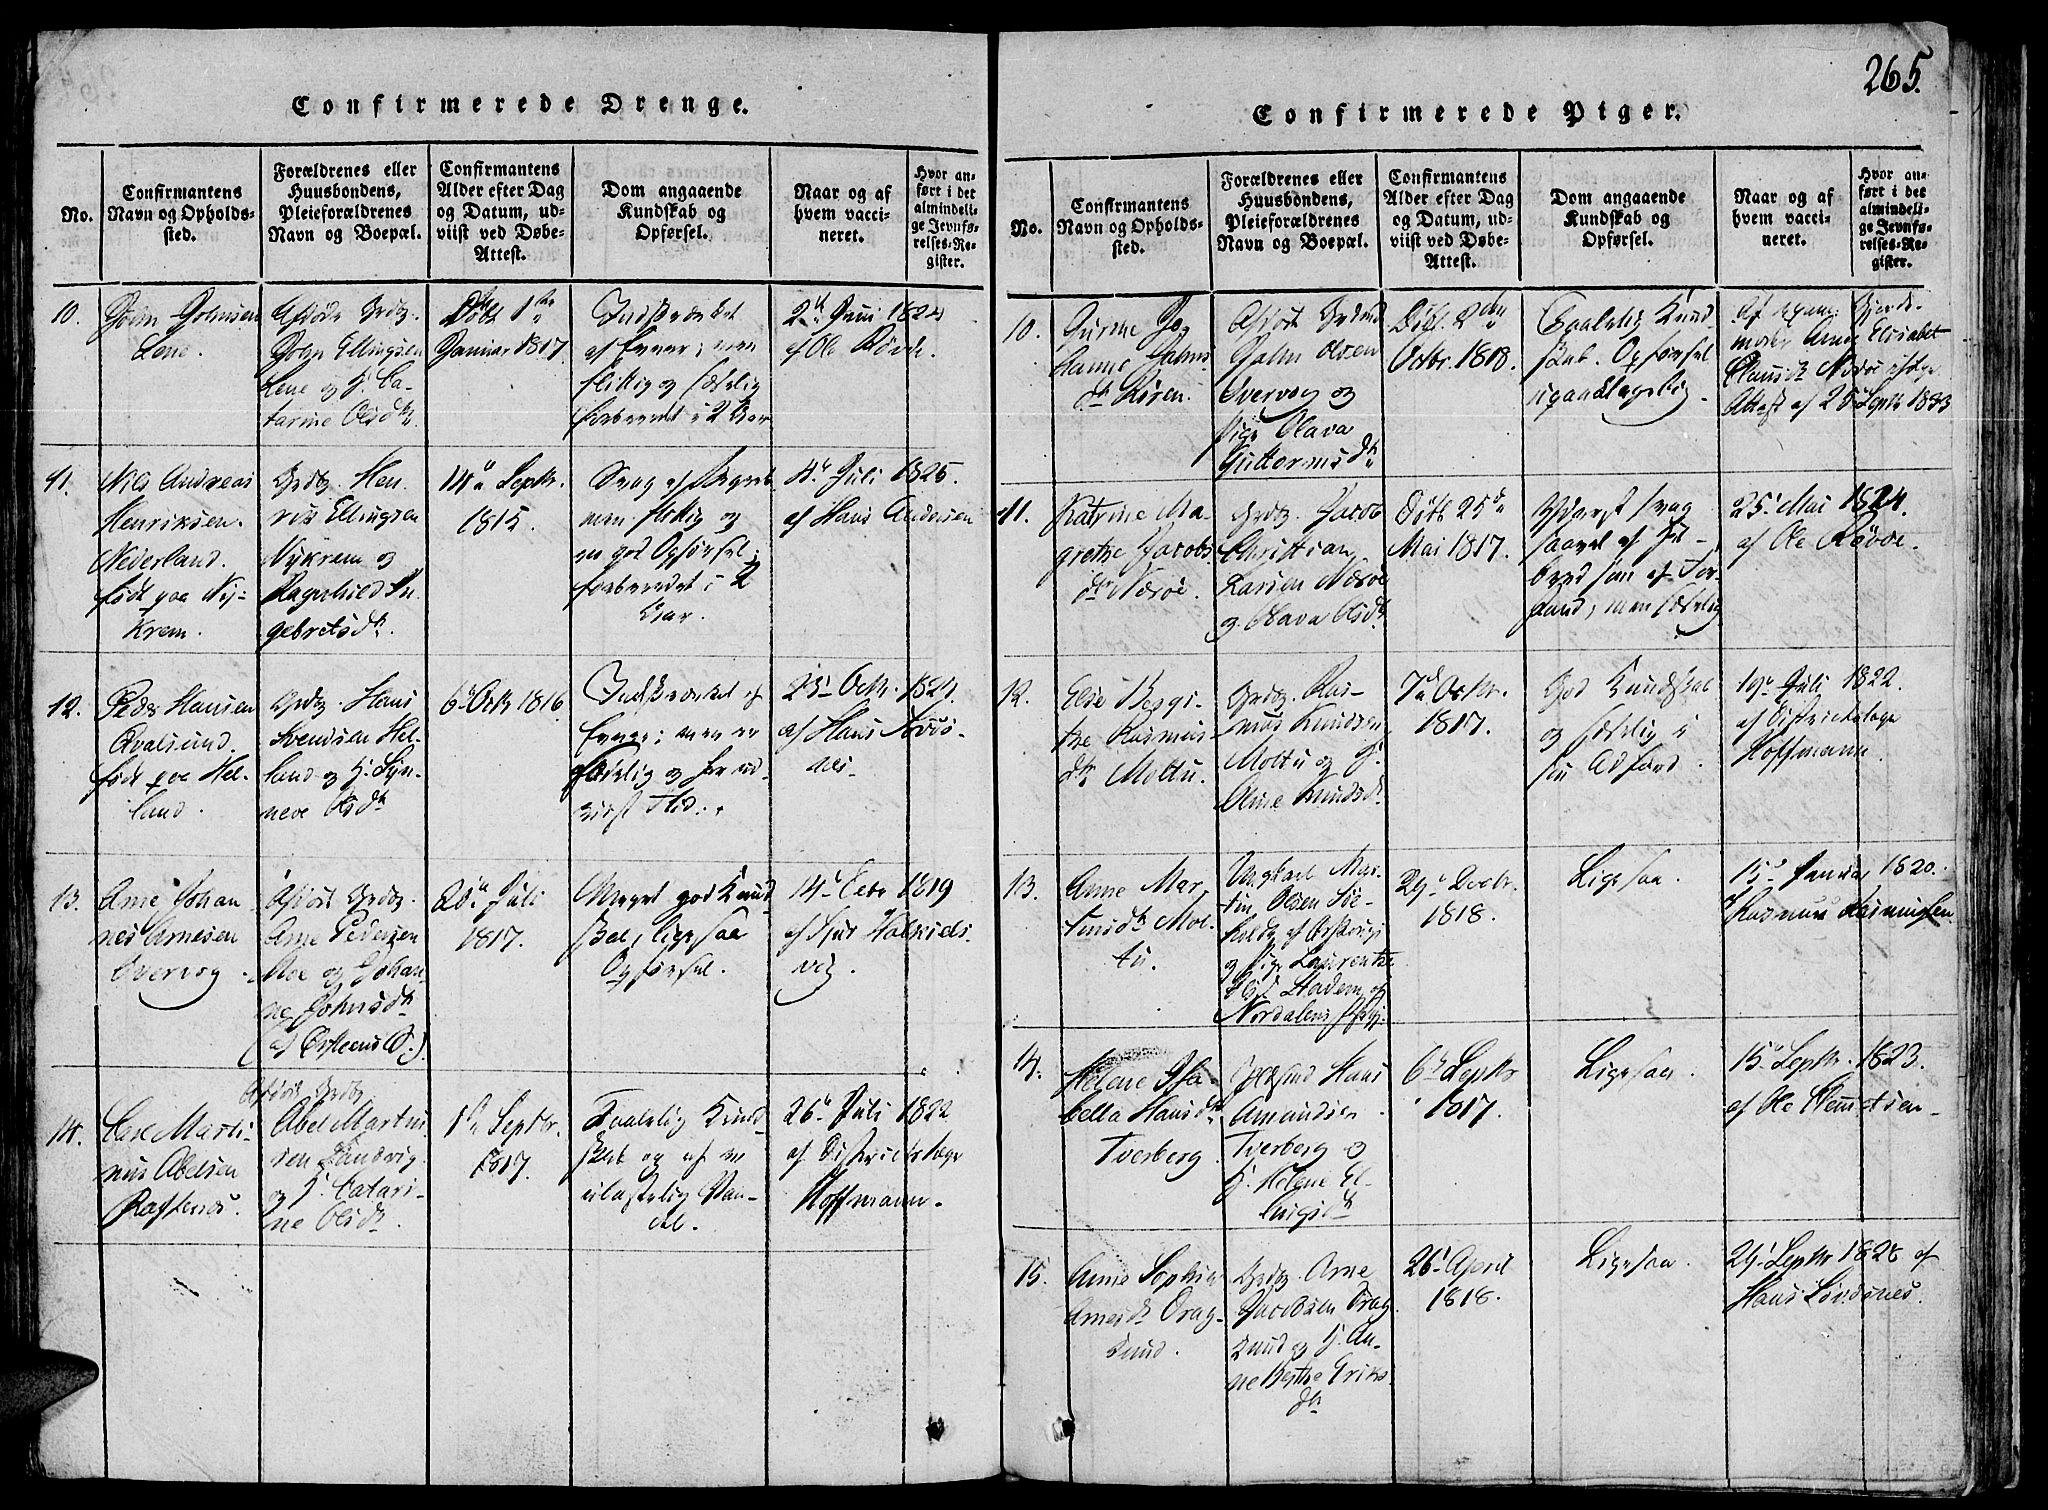 265.
Confirmerede Drenge.
No.
Confirmantens Navn og Opholdssted.
Forældrenes eller Huusbondens, Pleieforældrenes Navn og Boepæl.
Confirmantens Alder efter Dag og Datum, udviist ved Døbe-Attest.
Dom angaaende Kundskab og Opførsel.
Naar og af hvem vaccineret.
Hvor anført i det almindelige Jevnførelses-Register.
10.
John Johnsen
Lene.
Afdøde Grdbr.
John Ellingsen
Lene og H. Ca-
tarine Olsdtr.
Døbt 1ste
Januar 1817.
Indskrænket
af Evner; men
flittig og sædelig
forberedet i 2 Aar
2de Juni 1824
af Ole Røvde.
11.
Nils Andreas
Henriksen
Nederland.
født paa Ny-
krem.
Grdbr. Hen-
rik Ellingsen
Nykrem og
Ragnhild In-
gebretsdtr.
14de Septbr.
1815.
Svag af Begreb
men flittig og
en god Opførsel;
forberedet i 2
Aar.
4de Juli 1825.
af Hans Andersen
12.
Peder Hansen
Qvalsund.
født paa Hel-
land.
Grdbr. Hans
Svendsen Hel-
land og H. Syn-
neve Olsdtr
6te Octbr 1816.
Indskrænket af
Evner; men er
sædelig og har ud-
viist Flid.
23de Octbr. 1824
af Hans
13.
Arne Johan-
nes Arnesen
Tvervog.
Afdøde Grdbr.
Arne Pedersen
Aae og Johan-
ne Johnsdtr.
(af Ørsteens S.)
20de Juli
1817.
Meget god Kund-
skab, ligesaa
Opførsel.
14de Octbr 1819
af Siur
vig.
14.
Carl Marti-
nus Abelsen
Raftenes.
Afdøde Grdbr
Abel Martin-
sen Sandvig
og H. Catari-
ne Olsdtr.
1ste Septbr.
1817.
Taalelig Kund-
skab og af en
ulastelig Van-
del.
26de Juli 1822
af Districtslæge
Hoffmann.
Confirmerede Piger.
No.
Confirmantens Navn og Opholdssted.
Forældrenes eller Huusbondens, Pleieforældrenes Navn og Boepæl.
Confirmantens Alder efter Dag og Datum, udviist ved Døbe-Attest.
Dom angaaende Kundskab og Opførsel.
Naar og af hvem vaccineret.
Hvor anført i det almindelige Jevnførelses-Register.
10.
Jo-
hanne Johns-
dtr Røren.
John Olsen
Tvervog og
Pige Olava
Guttormsdtr.
Døbt 2den
Octbr. 1818.
Taalelig Kund-
skab. Opførsel
upaaklagelig.
Af Gjorde-
moder Anne Elisabet
Clausdtr Nærøe ifølge
Attest af 25 Septbr 1833
11.
Katrine Ma-
grethe Jacobs-
dtr Nærøe.
Grdbr. Jacob
Christian
Larsen Nærøe
og Olava Olsdtr
Døbt 25de
Mai 1817.
Yderst svag
saavel af Ind-
bered som af For-
stand; men sædelig
25de Mai 1824.
af Ole Røvde.
12.
Else Bergi-
the Rasmus-
dtr Moltu.
Grdbr. Ras-
mus Knudsen
Moltu og H.
Oline Knudsdtr
7de Octbr.
1817.
God Kundskab
og sædelig i
sin Adfærd.
19de Juli 1822.
af Districtslæge
Hoffmann.
13.
Anne Mar-
tinsdtr Mol-
tu.
Ungkarl Mar-
tin Olsen Sæ-
og Pige Laurentse
af
Nordalens Præstegj.
29de Octbr.
1818.
Ligesaa.
15de Januar 1820.
af Rasmus Rasmussen
14.
Helene Isa-
bella Hansdtr
Tverberg.
Hans
Amundsen
Tverberg og
H. Helene El-
lingsdtr
6te Septbr
1817.
Ligesaa.
15de Septbr. 1823.
af Ole Knudsen
15.
Anne Sophie
Arnesdtr Drag-
sund.
Grdbr. Arne
Jacobsen Drag-
sund og H. An-
ne Berthe Eriks-
dtr
26de April
1818.
Ligesaa.
29de Septbr 1828 af
Hans Lønsenes.